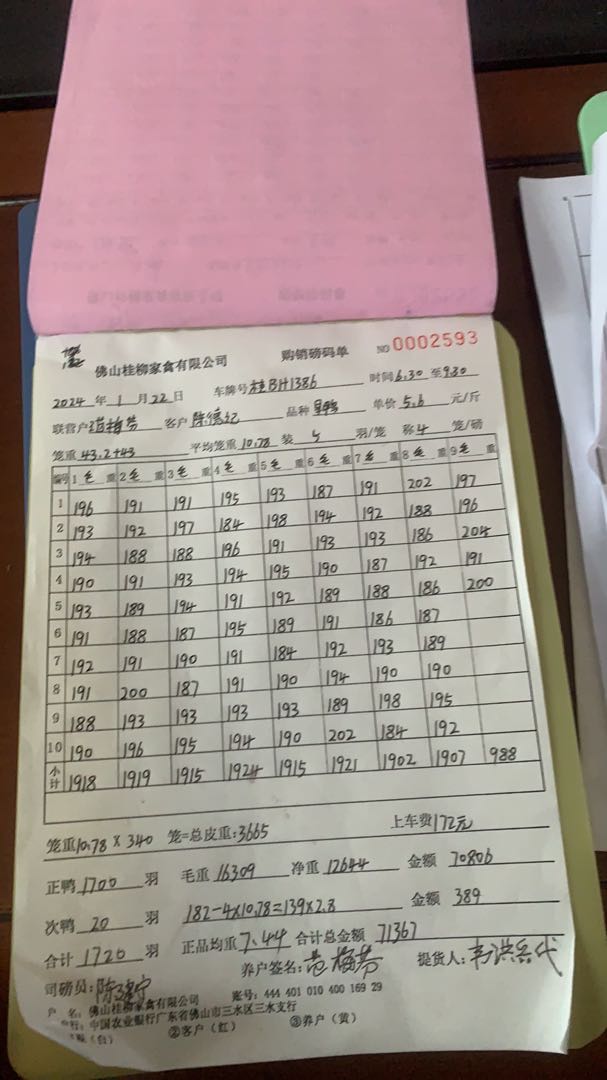 佛山桂柳家禽有限公司 购销磅码单 NO 0002593
2024年1月22日 车牌号桂BH1386 时间6.30至9.30
联营户 客户陈德记 品种 单价5.6元/斤
笼重43.2+43 平均笼重10.78 装5羽/笼 称4笼/磅
编号 1毛重 2毛重 3毛重 4毛重 5毛重 6毛重 7毛重 8毛重 9毛重
1 196 191 191 195 193 187 191 202 197
2 193 192 197 184 198 194 192 188 196
3 194 188 188 196 191 193 193 186 204
4 190 191 193 194 195 190 187 192 191
5 193 189 194 191 192 189 188 186 200
6 191 188 187 195 189 191 186 187
7 192 191 190 191 184 192 193 189
8 191 200 187 191 190 194 190 190
9 188 193 193 193 193 189 198 195
10 190 196 195 194 190 202 184 192
小计 1918 1919 1915 1924 1915 1921 1902 1907 988
笼重10.78×340笼=总皮重:3665 上车费172元
正鸭1700羽 毛重16309 净重12644 金额70806
次鸭20羽 182-4×10.78=139×2.8 金额389
合计1720羽 正品均重7.44 合计总金额71367
司磅员: 养户签名:范梅芬 提货人:韦洪兵代
户 名:佛山桂柳家禽有限公司 账号:444 401 010 400 169 29
行:中国农业银行广东省佛山市三水区三水支行
(白) ②客户(红) ③养户(黄)